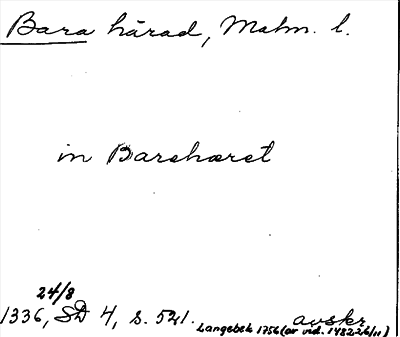 Bara härad, Malm. l.
in Barehæret
24/8
1336, SD 4, s. 521. avskr.
Langebek 1756 (av vid. 1482 26/11)